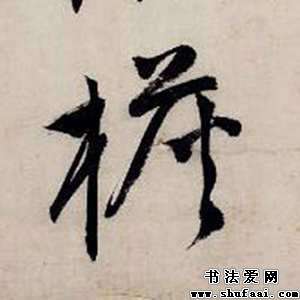 模
书法爱网
www.shufaai.com